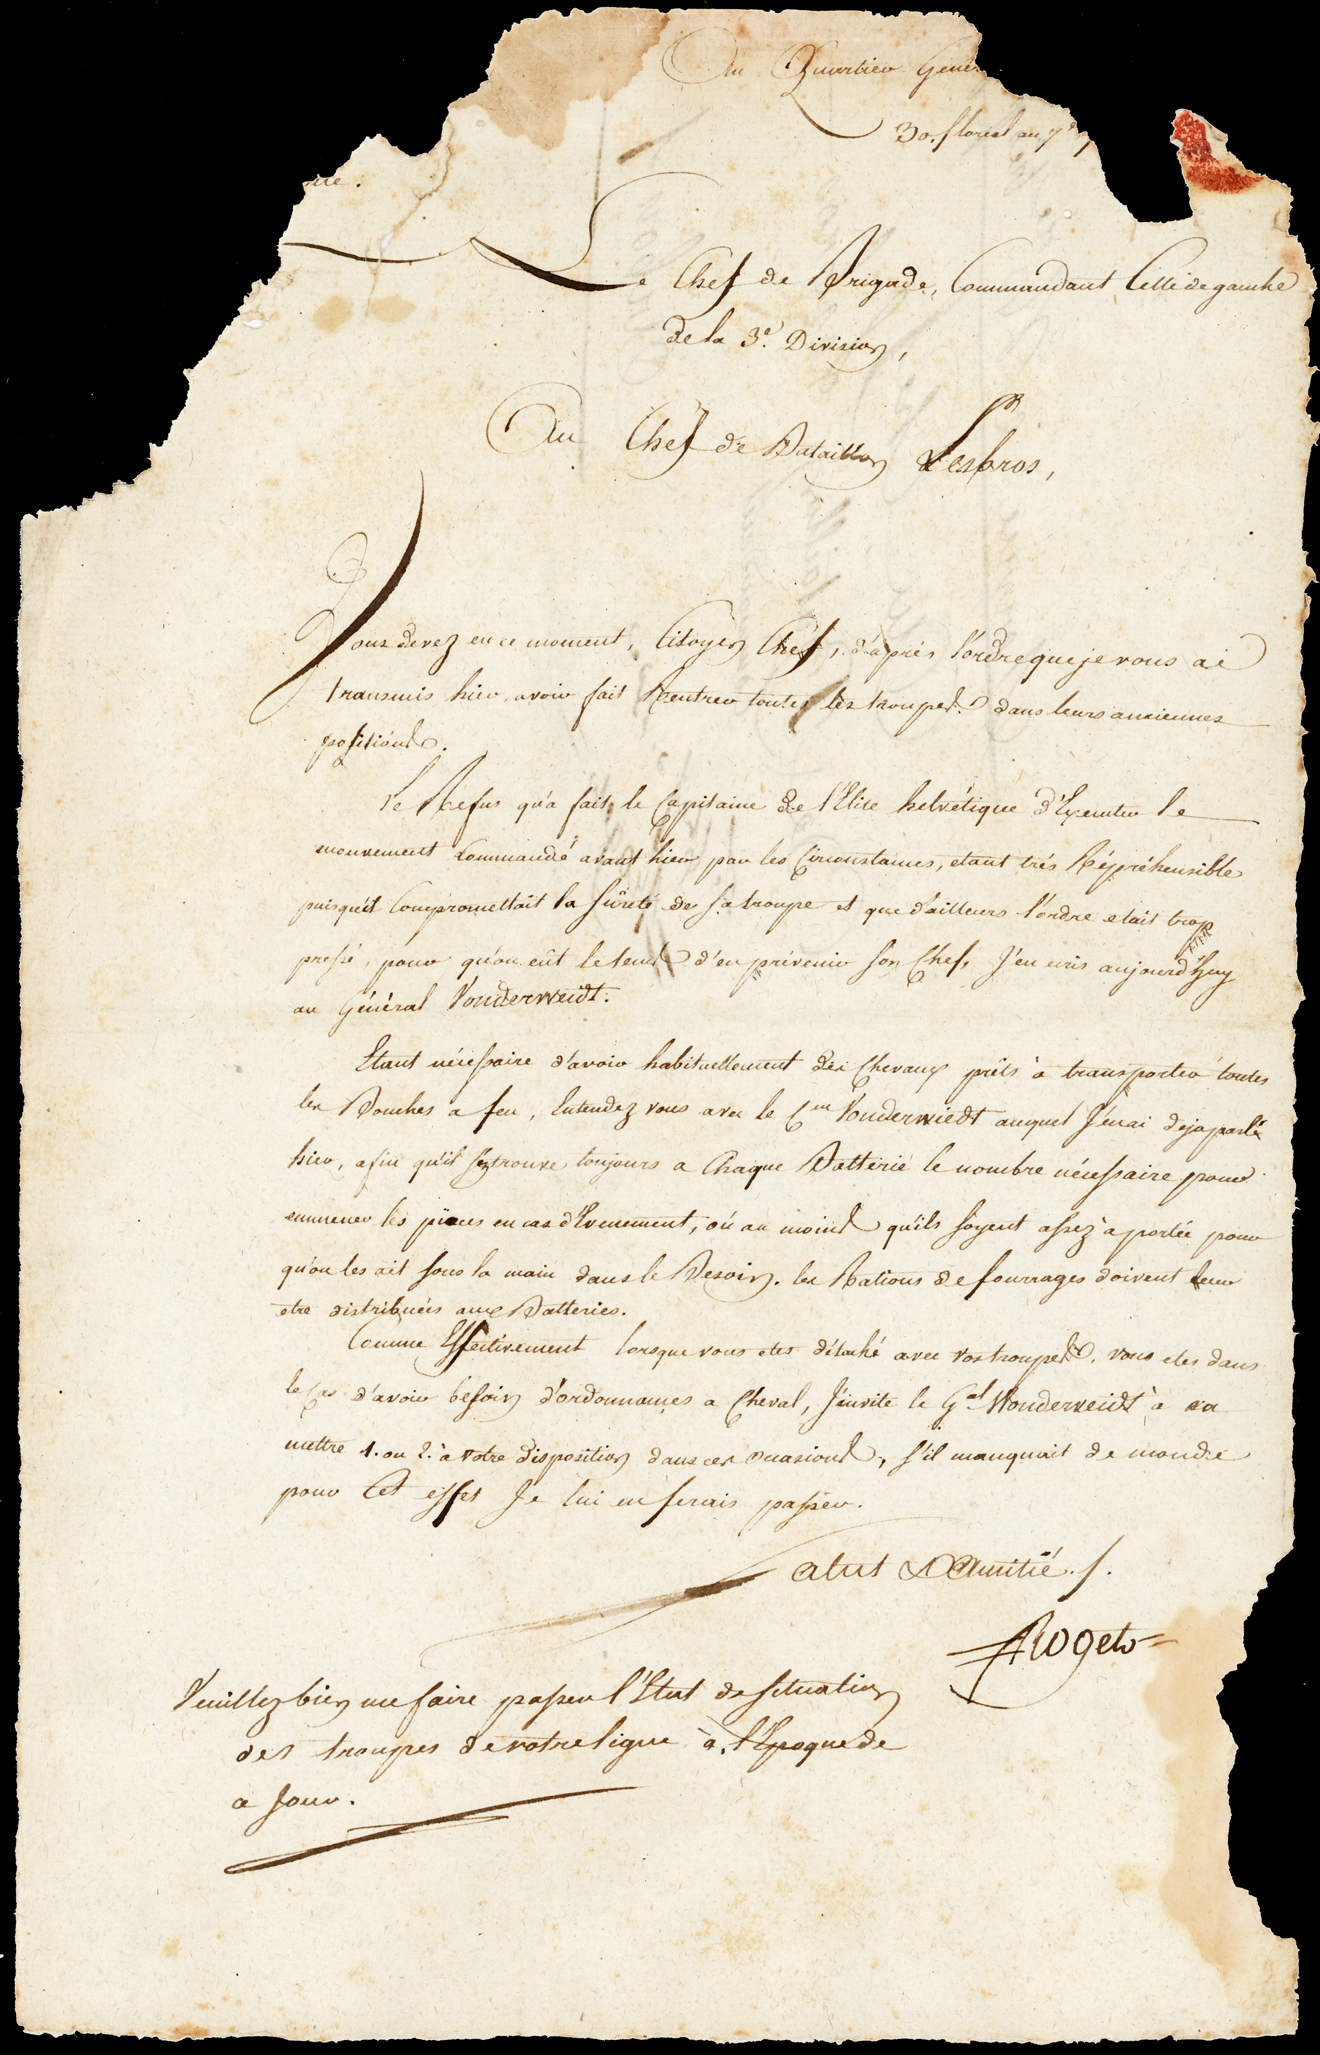 Au Quartier Géné
30. floréal an 7e
Le Chef de Brigade, Commandant l'aile de gauche
de la 3e. Division,
Au Chef de Bataillon Lesbros,
Vous devez en ce moment, Citoyen Chef, d'après l'ordre que je vous ai
transmis hier avoir fait Rentrer toutes les troupes dans leurs anciennes
positions.
Le Refus qu'a fait le Capitaine de l'Elite helvétique d'Executer le
mouvement Commandé avant hier par les Circonstances, etant très Répréhensible
puisqu'il Compromettait la sûreté de sa troupe et que d'ailleurs l'ordre etait trop
pressé, pour qu'on eût le tems d'en prévenir son Chef, J'en écris aujourd'huy
au Général Vonderweidt.
Etant nécessaire d'avoir habituellement des Chevaux prêts à transporter toutes
les Bouches a feu, Entendez vous avec le Cen Vonderwiedt auquel J'en ai deja parlé
hier, afin qu'il se trouve toujours a Chaque Batterie le nombre nécessaire pour
emmener les pièces en cas d'Evenement, où au moins qu'ils soyent assez à portée pour
qu'on les ait sous la main dans le Besoin. les Rations de fourrages doivent leur
etre distribuées aux Batteries.
Comme Effectivement lorsque vous etes détaché avec vos troupes, vous etes dans
le Cas d'avoir besoin d'ordonnances a Cheval, J'invite le Gal Vonderweidt à en
mettre 1. ou 2. à votre disposition dans ces occasions, s'il manquait de monde
pour Cet effet Je lui en ferais passer.
Salut & Amitié.
Roget
Veuillez bien me faire passer l'Etat de situation
des troupes de votre ligne à l'Epoque de
a Jour.